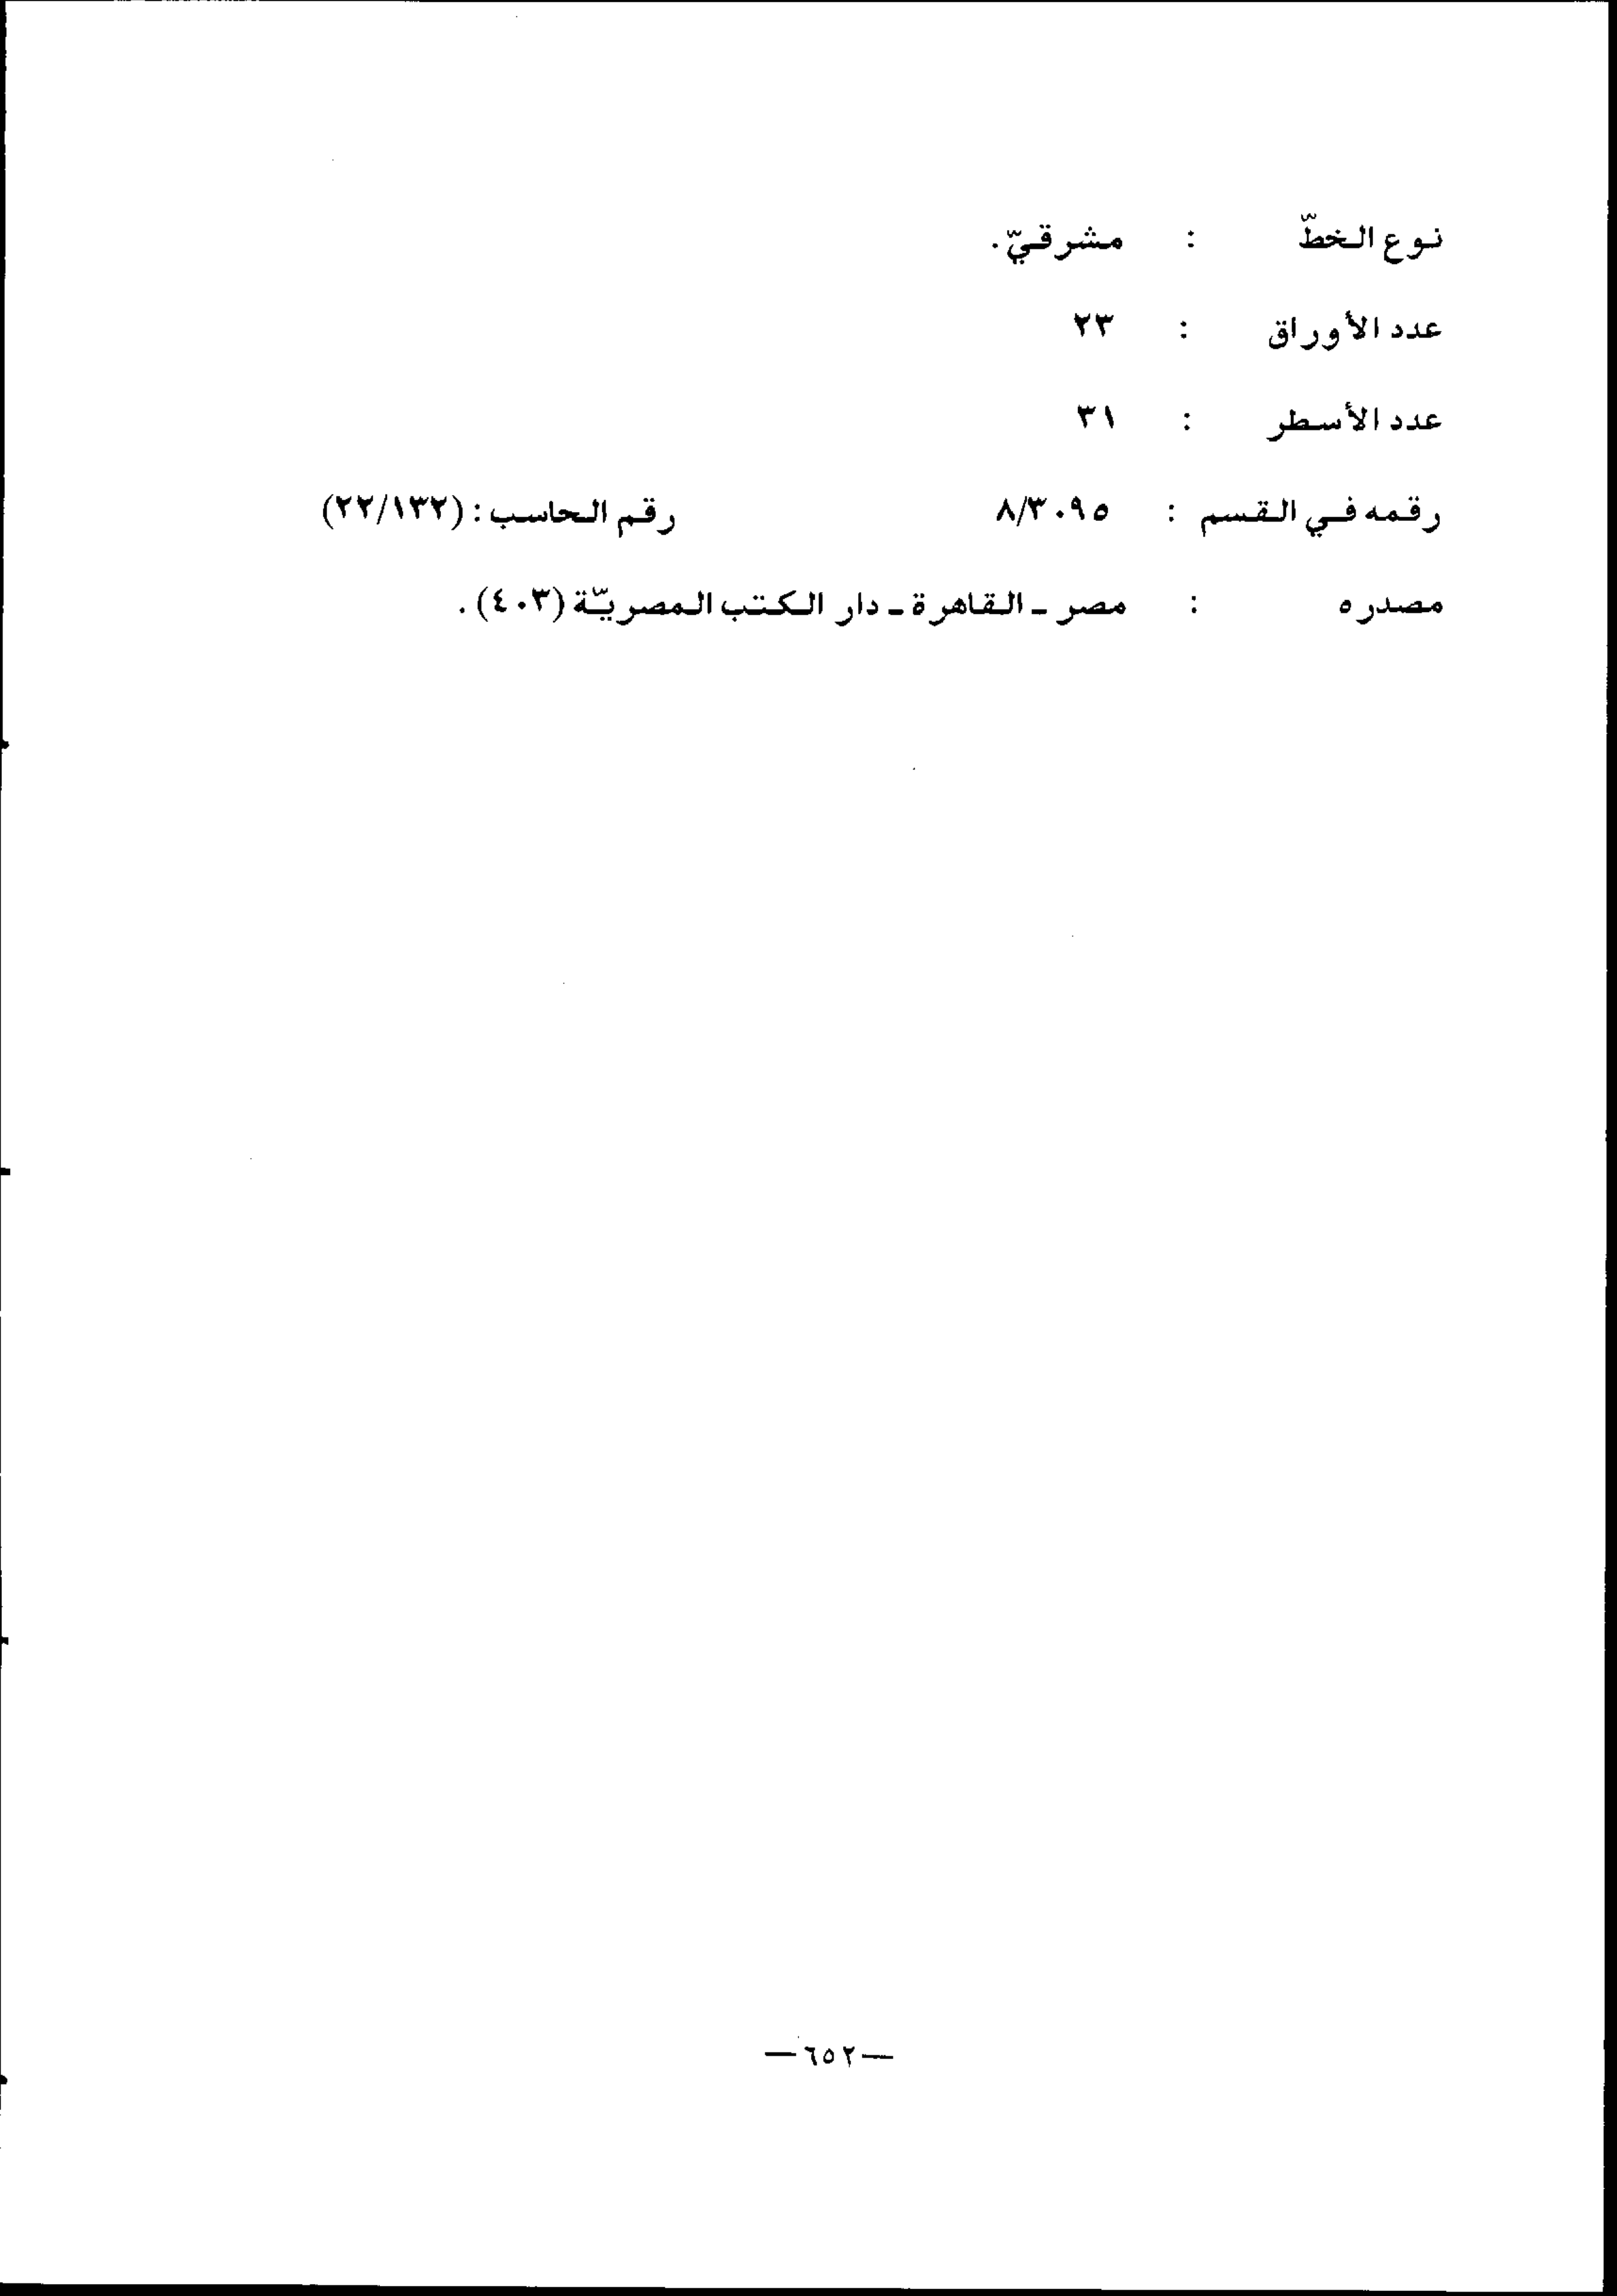 نوع الخطّ : مشرقيّ.
عدد الأوراق : ٢٣
عدد الأسطر : ٣١
رقمه في القسم : ٨/٣٠٩٥ رقم الحاسب : (٢٢/١٣٢)
مصدره : مصر ـ القاهرة ـ دار الكتب المصريّة (٤٠٣) .
—٦٥٢—